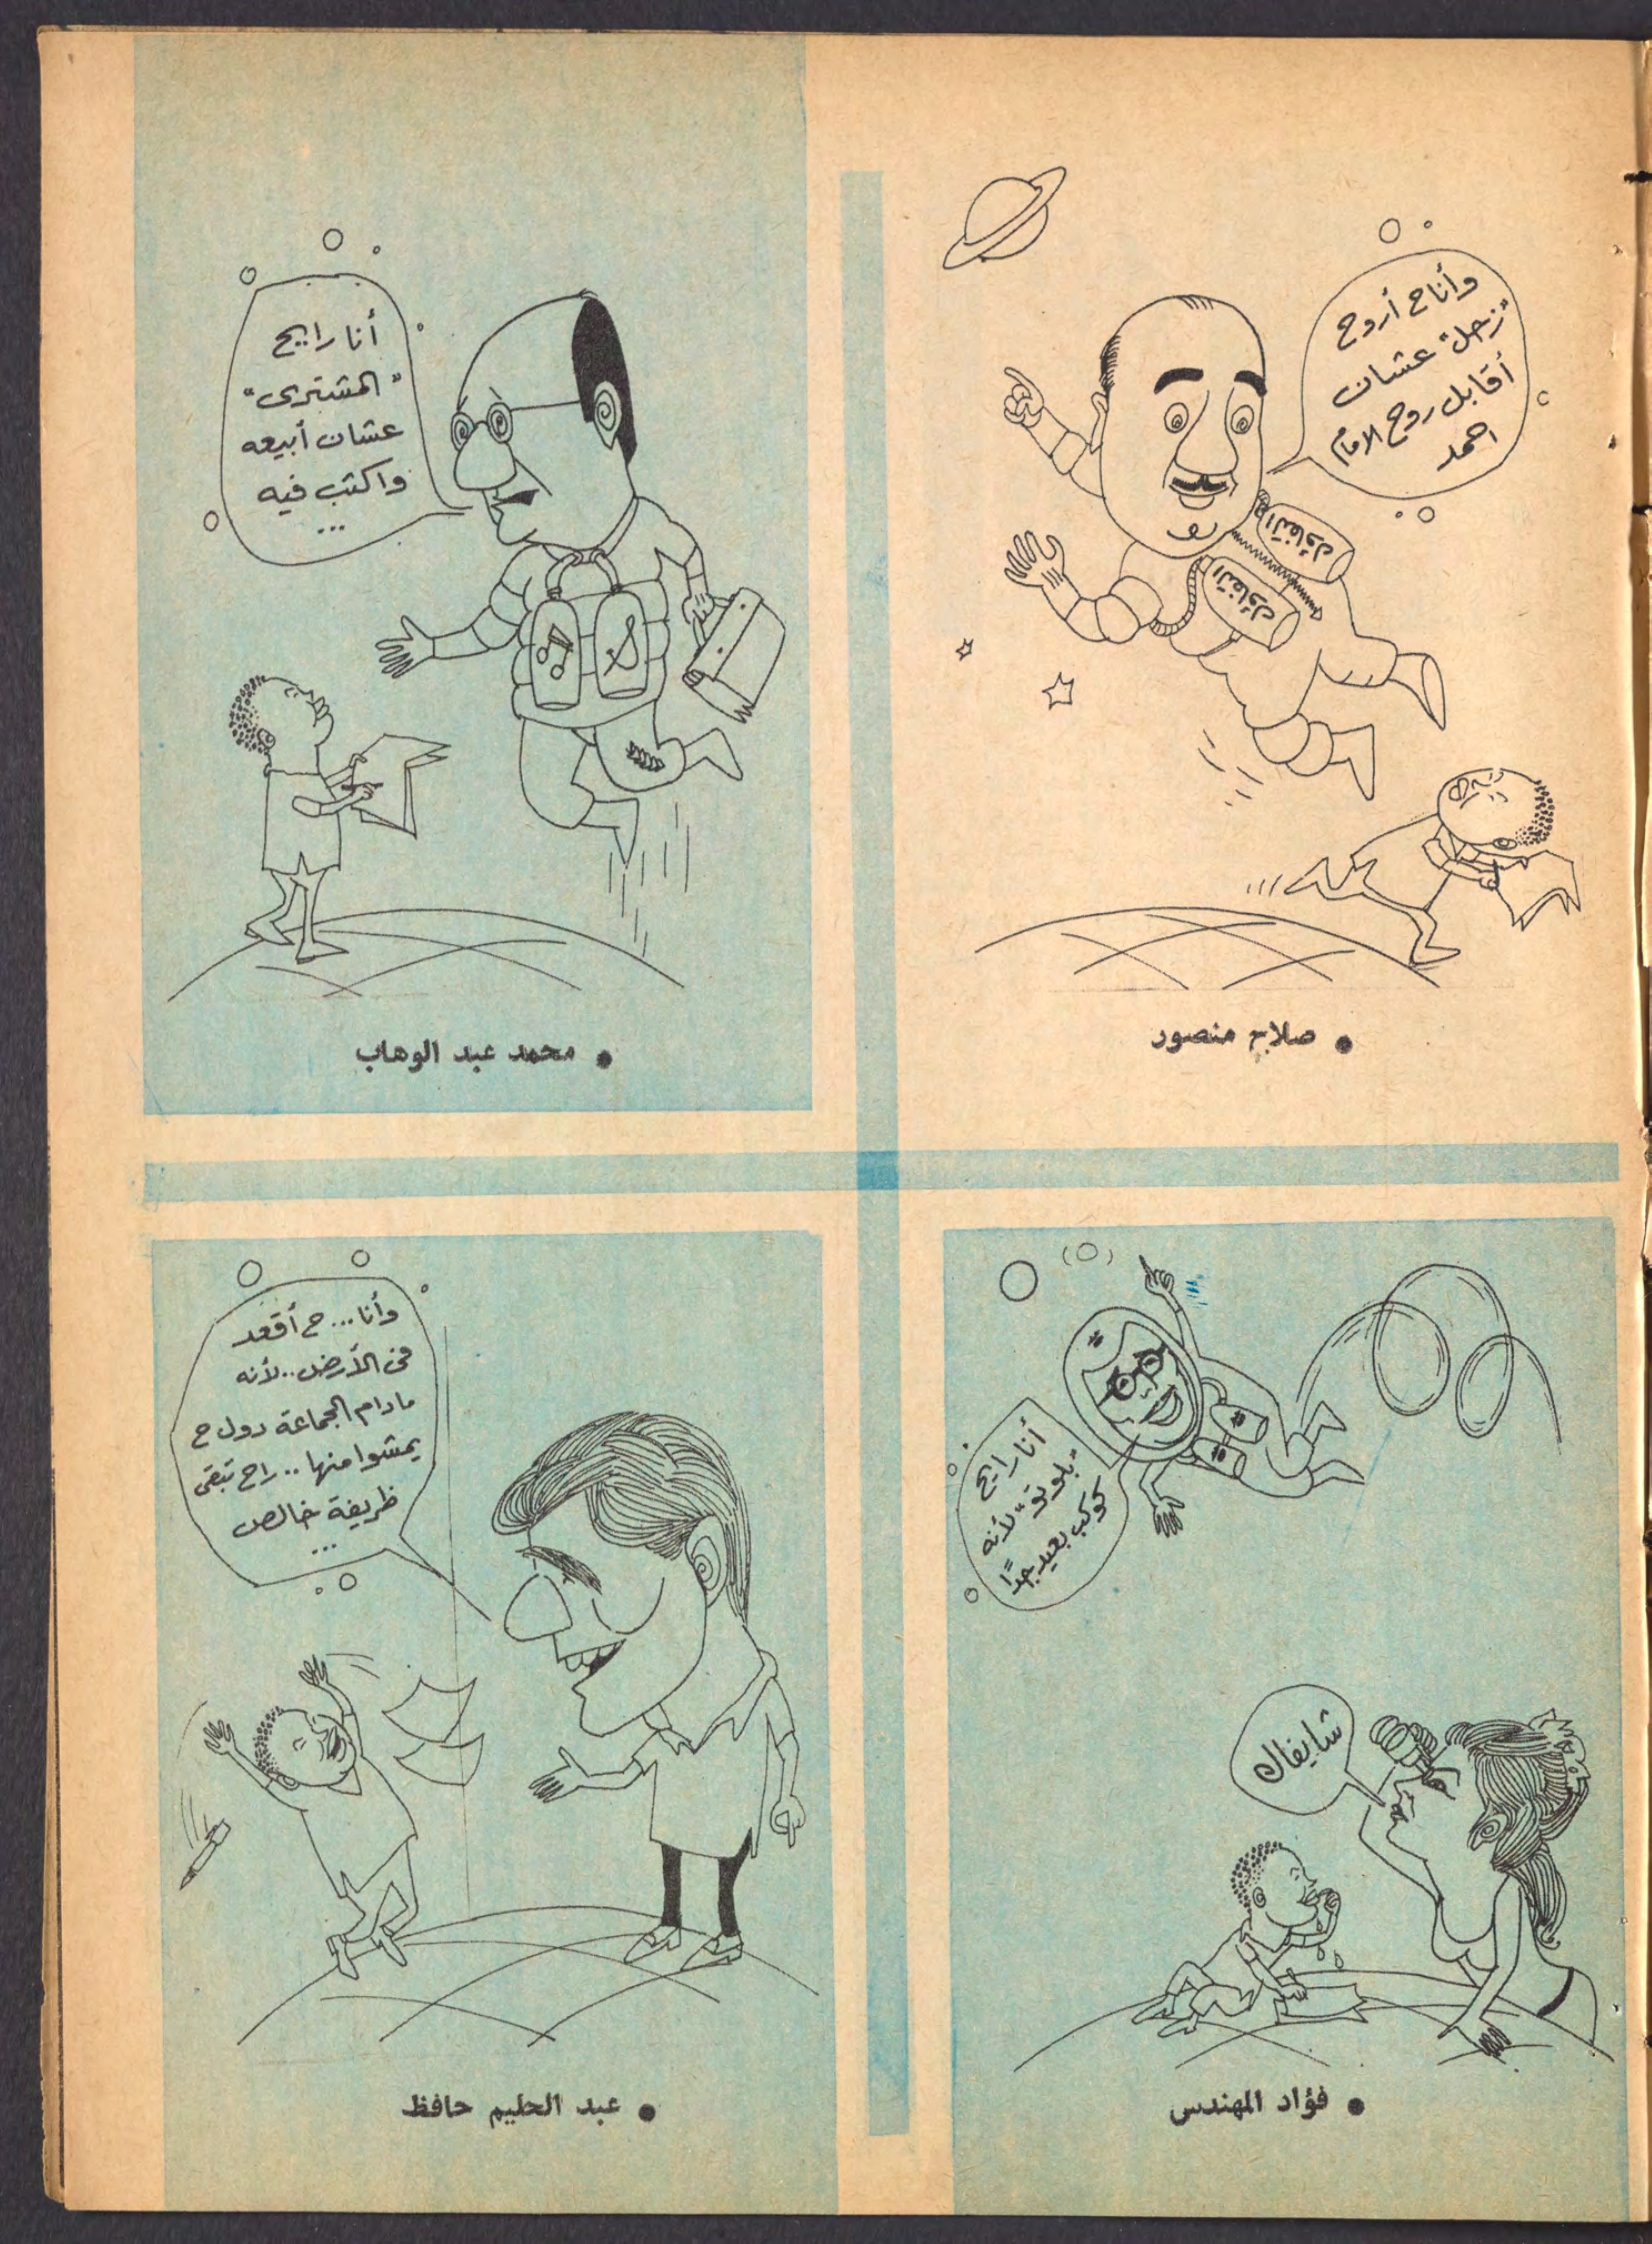 وأنا ح أروح
"زحل" عشان
أقابل روح الامام
احمد
التفاؤل
التفاؤل
• صلاح منصور
أنا رايح
"المشترى"
عشان أبيعه
واكتب فيه
...
• محمد عبد الوهاب
أنا رايح
"بلوتو" لأنه
كوكب بعيد جدًا
شايفاك
• فؤاد المهندس
وأنا... ح أقعد
فى الأرض.. لأنه
مادام الجماعة دول ح
يمشوا منها.. راح تبقى
ظريفة خالص
...
• عبد الحليم حافظ